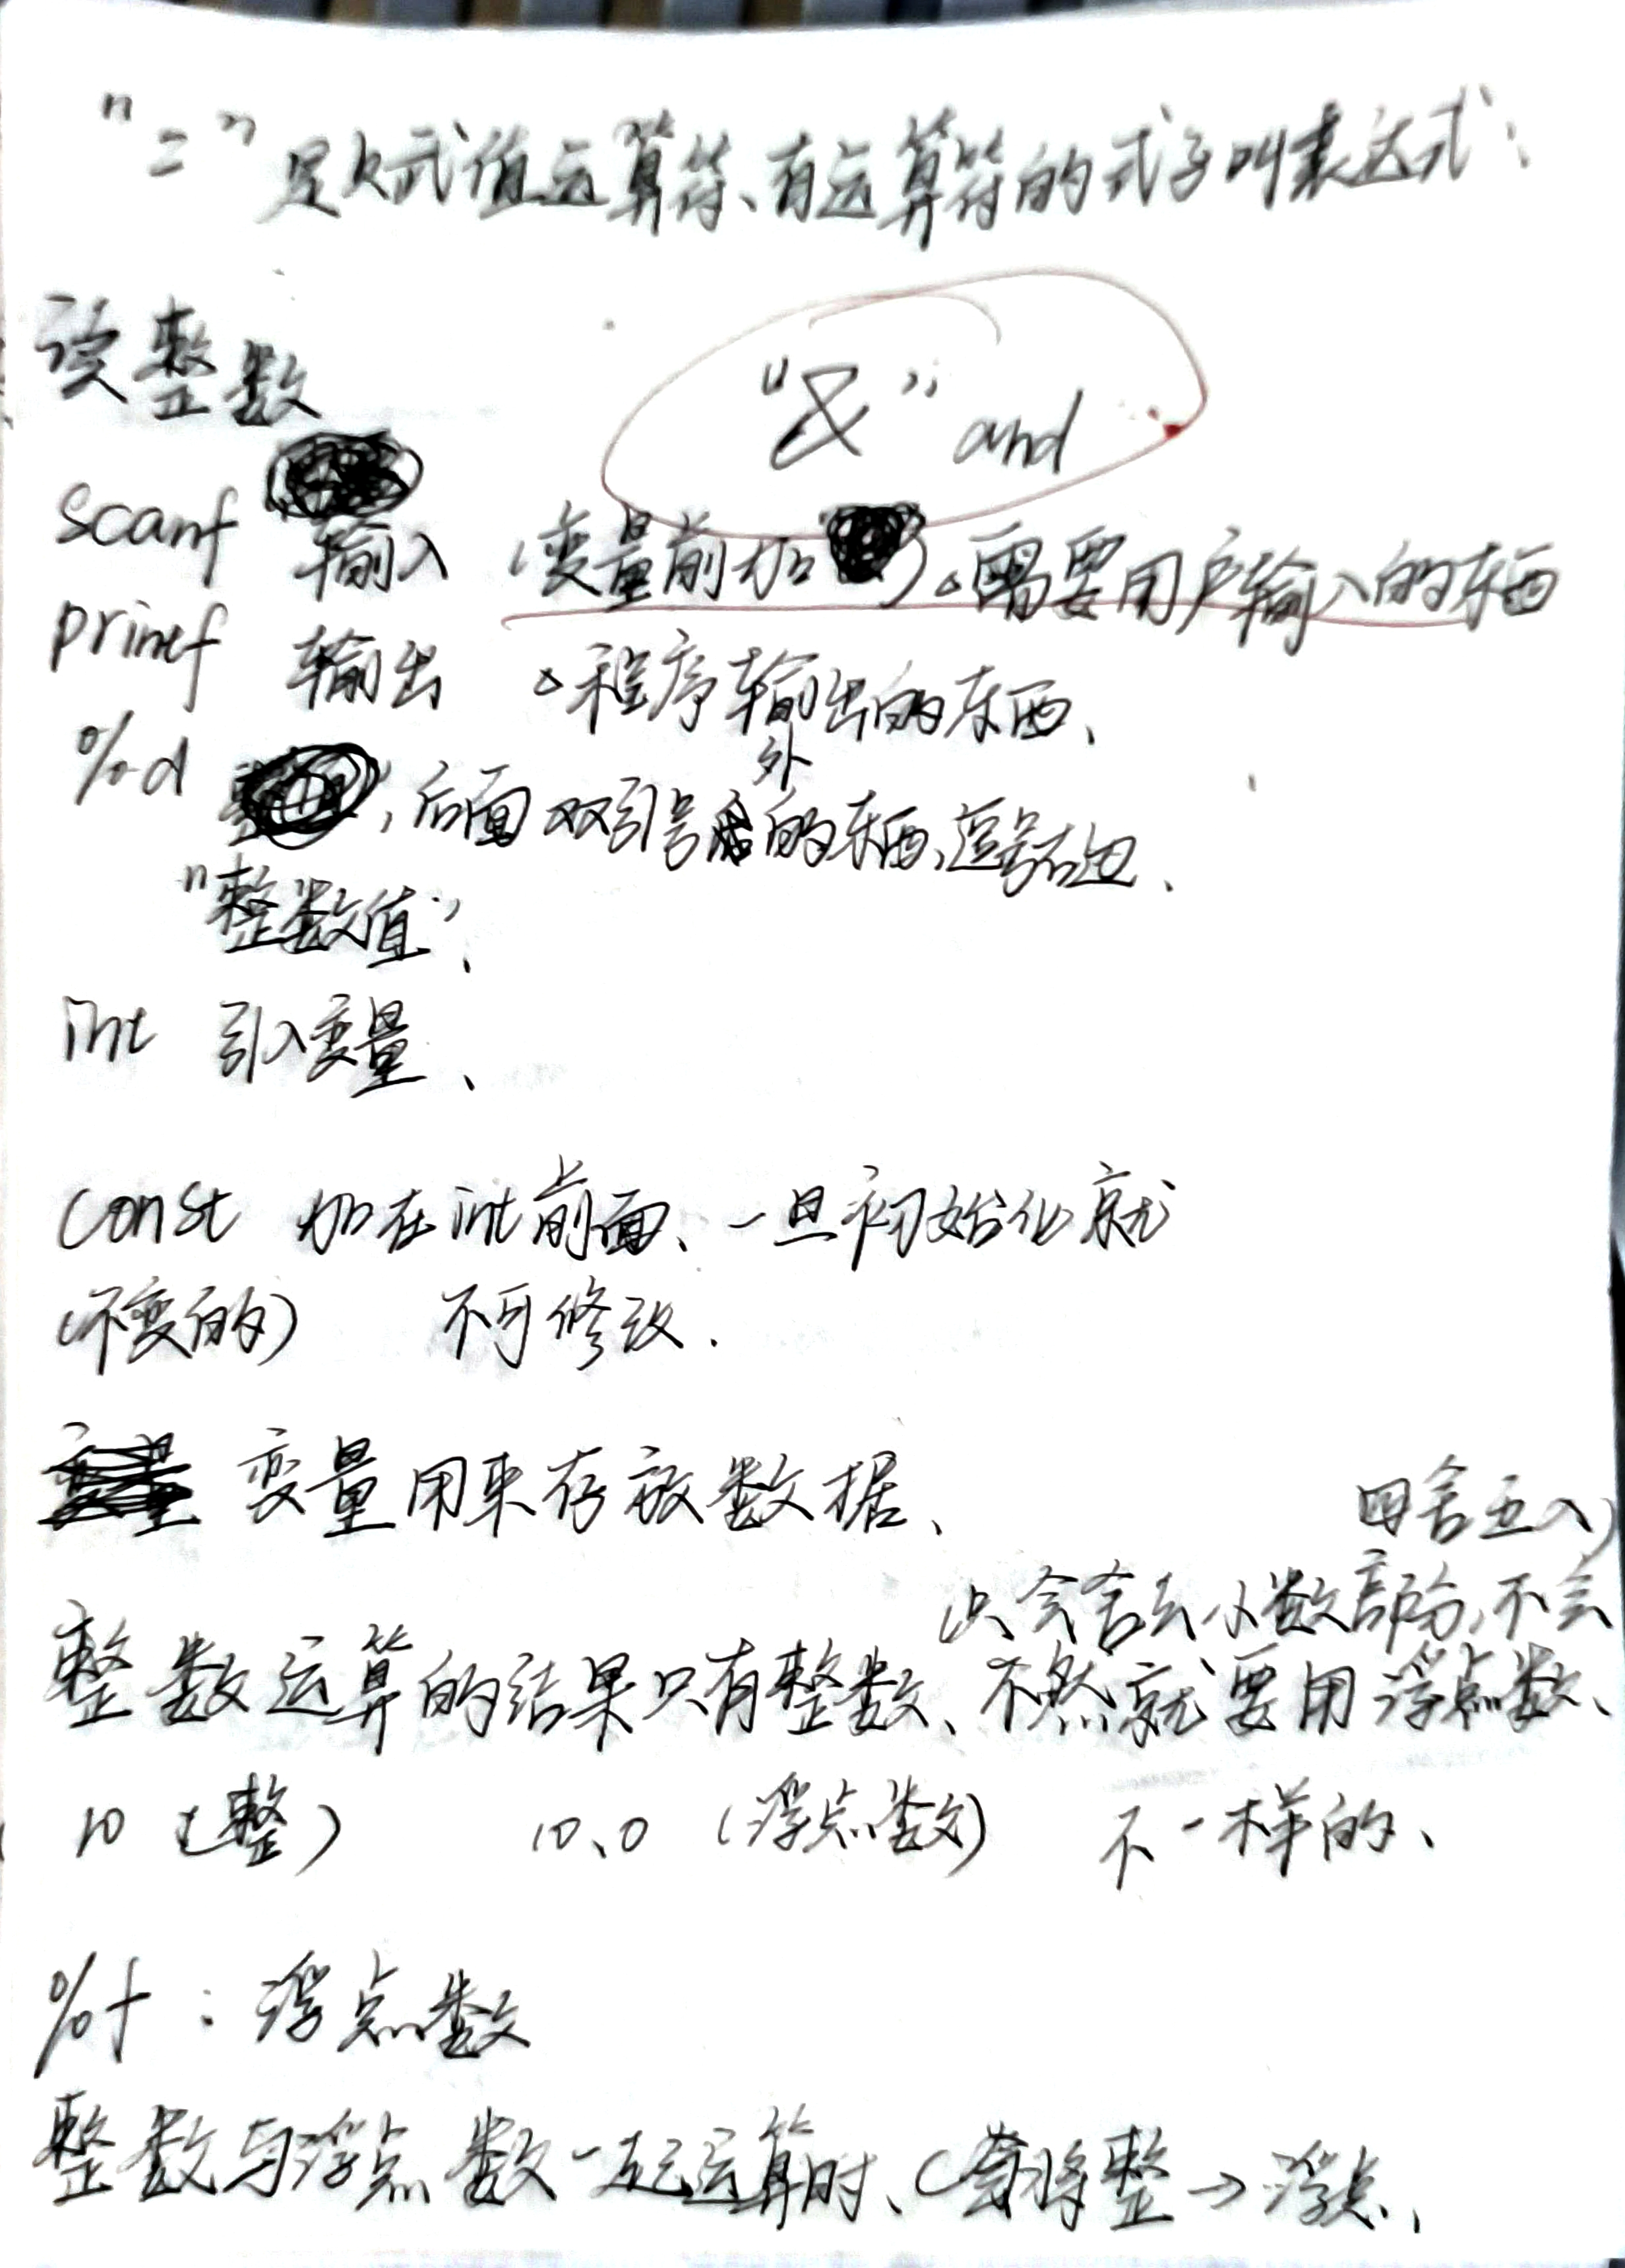 "="是赋值运算符、有运算符的式子叫表达式;
读整数
"&" and
scanf 输入 (变量前加 )。需要用户输入的东西
prinef 输出 。程序输出的东西、
%d ,后面双引号外的东西,逗号右边、
"整数值"、
int 引入变量、
const 加在int前面、一旦初始化就
(不变的) 不可修改.
变量用来存放数据、
四舍五入)
(只会舍去小数部分,不会
整数运算的结果只有整数、不然就要用浮点数、
10 (整) 10.0 (浮点数) 不一样的、
%f : 浮点数
整数与浮点数一起运算时、C会将整→浮点、